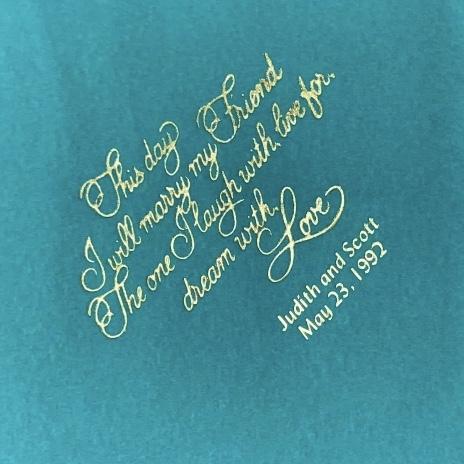 This day
I will marry my Friend
The one I laugh with, live for,
dream with,
Love
Judith and Scott
May 23, 1992